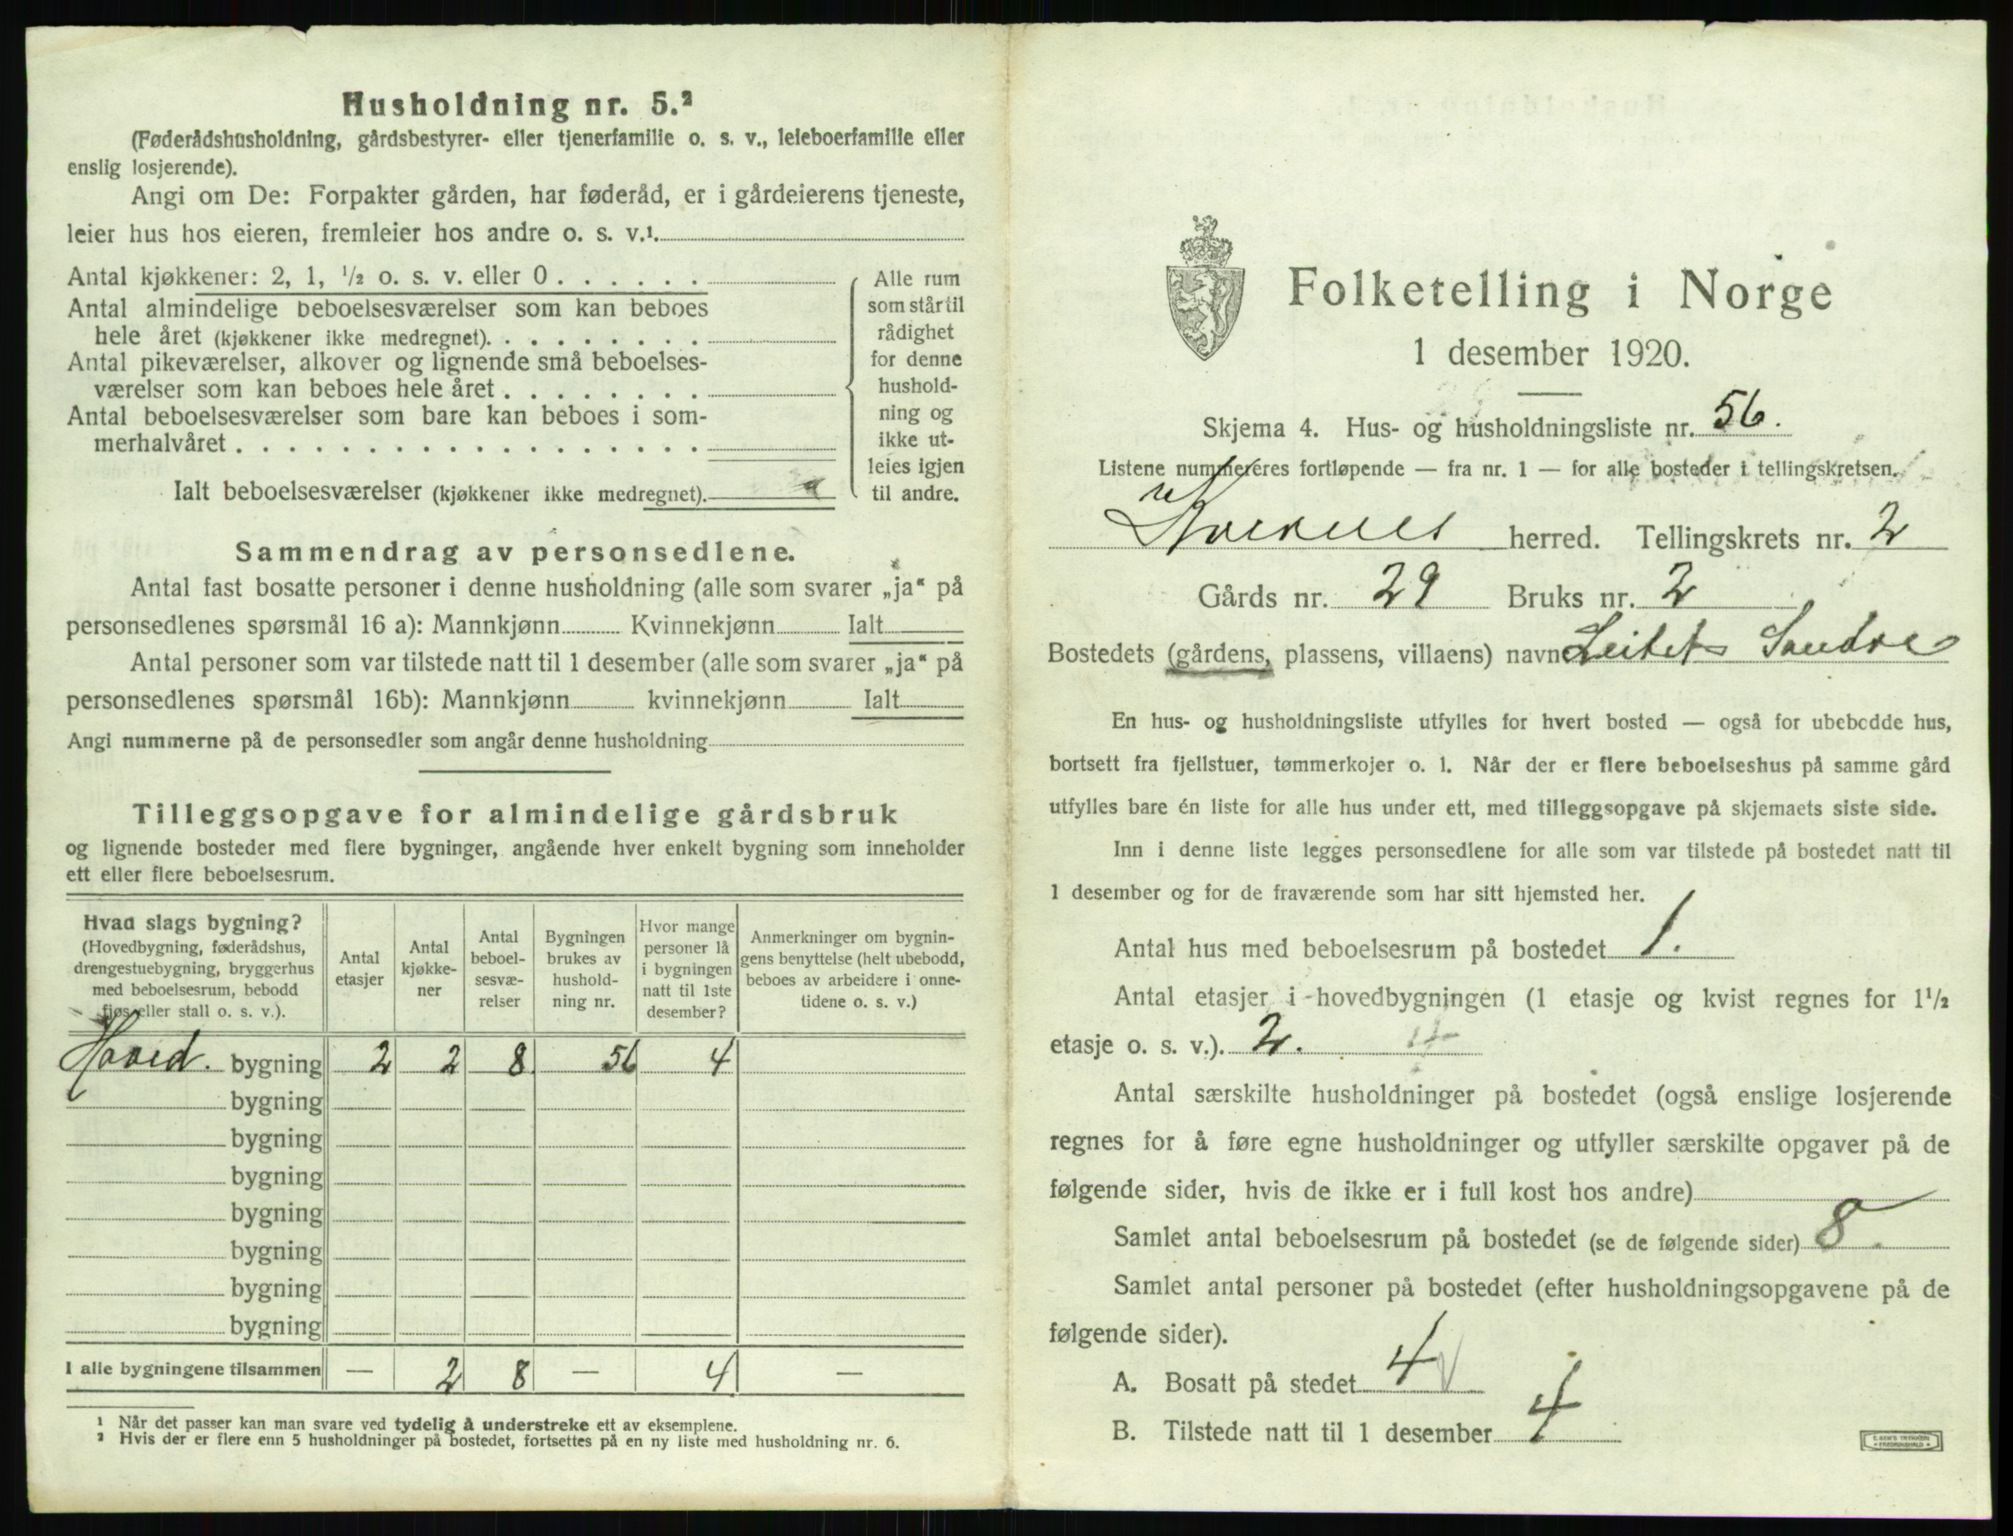 Husholdning nr. 5.²
(Føderådshusholdning, gårdsbestyrer- eller tjenerfamilie o. s. v., leieboerfamilie eller
enslig losjerende).
Angi om De: Forpakter gården, har føderåd, er i gårdeierens tjeneste,
leier hus hos eieren, fremleier hos andre o. s. v.¹.
Antal kjøkkener: 2, 1, ½ o. s. v. eller 0 . . . . . .
Antal almindelige beboelsesværelser som kan beboes
hele året (kjøkkener ikke medregnet). . . . . . . . .
Antal pikeværelser, alkover og lignende små beboelses-
værelser som kan beboes hele året . . . . . . . .
Antal beboelsesværelser som bare kan beboes i som-
merhalvåret . . . . . . . . . . . . . . . . . .
Ialt beboelsesværelser (kjøkkener ikke medregnet).
Alle rum
som står til
rådighet
for denne
hushold-
ning og
ikke ut-
leies igjen
til andre.
Sammendrag av personsedlene.
Antal fast bosatte personer i denne husholdning (alle som svarer „ja“ på
personsedlenes spørsmål 16 a): Mannkjønn Kvinnekjønn Ialt
Antal personer som var tilstede natt til 1 desember (alle som svarer „ja“ på
personsedlenes spørsmål 16b): Mannkjønn kvinnekjønn Ialt
Angi nummerne på de personsedler som angår denne husholdning
Tilleggsopgave for almindelige gårdsbruk
og lignende bosteder med flere bygninger, angående hver enkelt bygning som inneholder
ett eller flere beboelsesrum.
Hvad slags bygning?
(Hovedbygning, føderådshus,
drengestuebygning, bryggerhus
med beboelsesrum, bebodd
fjøs eller stall o. s. v.).
Antal
etasjer
Antal
kjøkke-
ner
Antal
beboel-
sesvæ-
relser
Bygningen
brukes av
hushold-
ning nr.
Hvor mange
personer lå
i bygningen
natt til 1ste
desember?
Anmerkninger om bygnin-
gens benyttelse (helt ubebodd,
beboes av arbeidere i onne-
tidene o. s. v.)
Hoved. bygning 2 2 8 56 4
bygning
bygning
bygning
bygning
bygning
bygning
bygning
I alle bygningene tilsammen — 2 8 — 4 —
¹ Når det passer kan man svare ved tydelig å understreke ett av eksemplene.
² Hvis der er flere enn 5 husholdninger på bostedet, fortsettes på en ny liste med husholdning nr. 6.
Folketelling i Norge
1 desember 1920.
Skjema 4. Hus- og husholdningsliste nr. 56.
Listene nummereres fortløpende — fra nr. 1 — for alle bosteder i tellingskretsen.
herred. Tellingskrets nr. 2
Gårds nr. 29 Bruks nr. 2
Bostedets (gårdens, plassens, villaens) navn Leitet Søndre
En hus- og husholdningsliste utfylles for hvert bosted — også for ubebodde hus,
bortsett fra fjellstuer, tømmerkojer o. l. Når der er flere beboelseshus på samme gård
utfylles bare én liste for alle hus under ett, med tilleggsopgave på skjemaets siste side.
Inn i denne liste legges personsedlene for alle som var tilstede på bostedet natt til
1 desember og for de fraværende som har sitt hjemsted her.
Antal hus med beboelsesrum på bostedet 1.
Antal etasjer i hovedbygningen (1 etasje og kvist regnes for 1½
etasje o. s. v.). 2.
Antal særskilte husholdninger på bostedet (også enslige losjerende
regnes for å føre egne husholdninger og utfyller særskilte opgaver på de
følgende sider, hvis de ikke er i full kost hos andre)
Samlet antal beboelsesrum på bostedet (se de følgende sider) 8.
Samlet antal personer på bostedet (efter husholdningsopgavene på de
følgende sider).
A. Bosatt på stedet 4
B. Tilstede natt til 1 desember 4